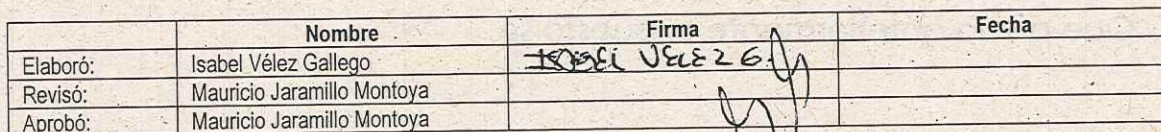 Nombre Firma Fecha
Elaboró: Isabel Vélez Gallego ISABEL VELEZ G.
Revisó: Mauricio Jaramillo Montoya
Aprobó: Mauricio Jaramillo Montoya